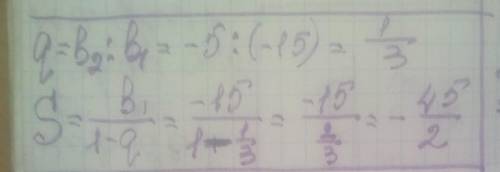 q = b₂ : b₁ = -5 : (-15) = 1/3
S = b₁/(1-q) = -15/(1-1/3) = -15/(2/3) = -45/2